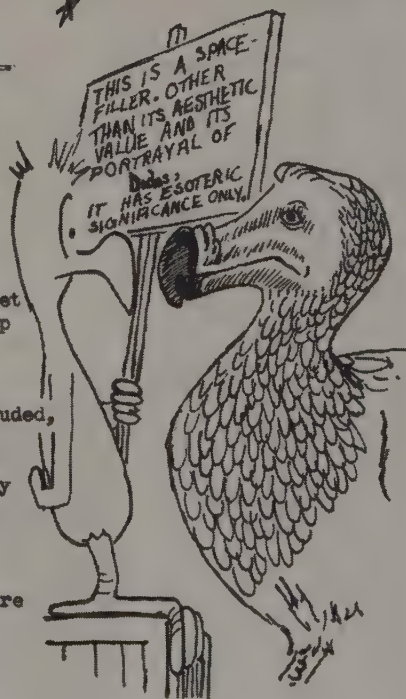 THIS IS A SPACE-
FILLER. OTHER
THAN ITS AESTHETIC
VALUE AND ITS
PORTRAYAL OF
Dodos,
IT HAS ESOTERIC
SIGNIFICANCE ONLY.
et
p
uded,
y
re